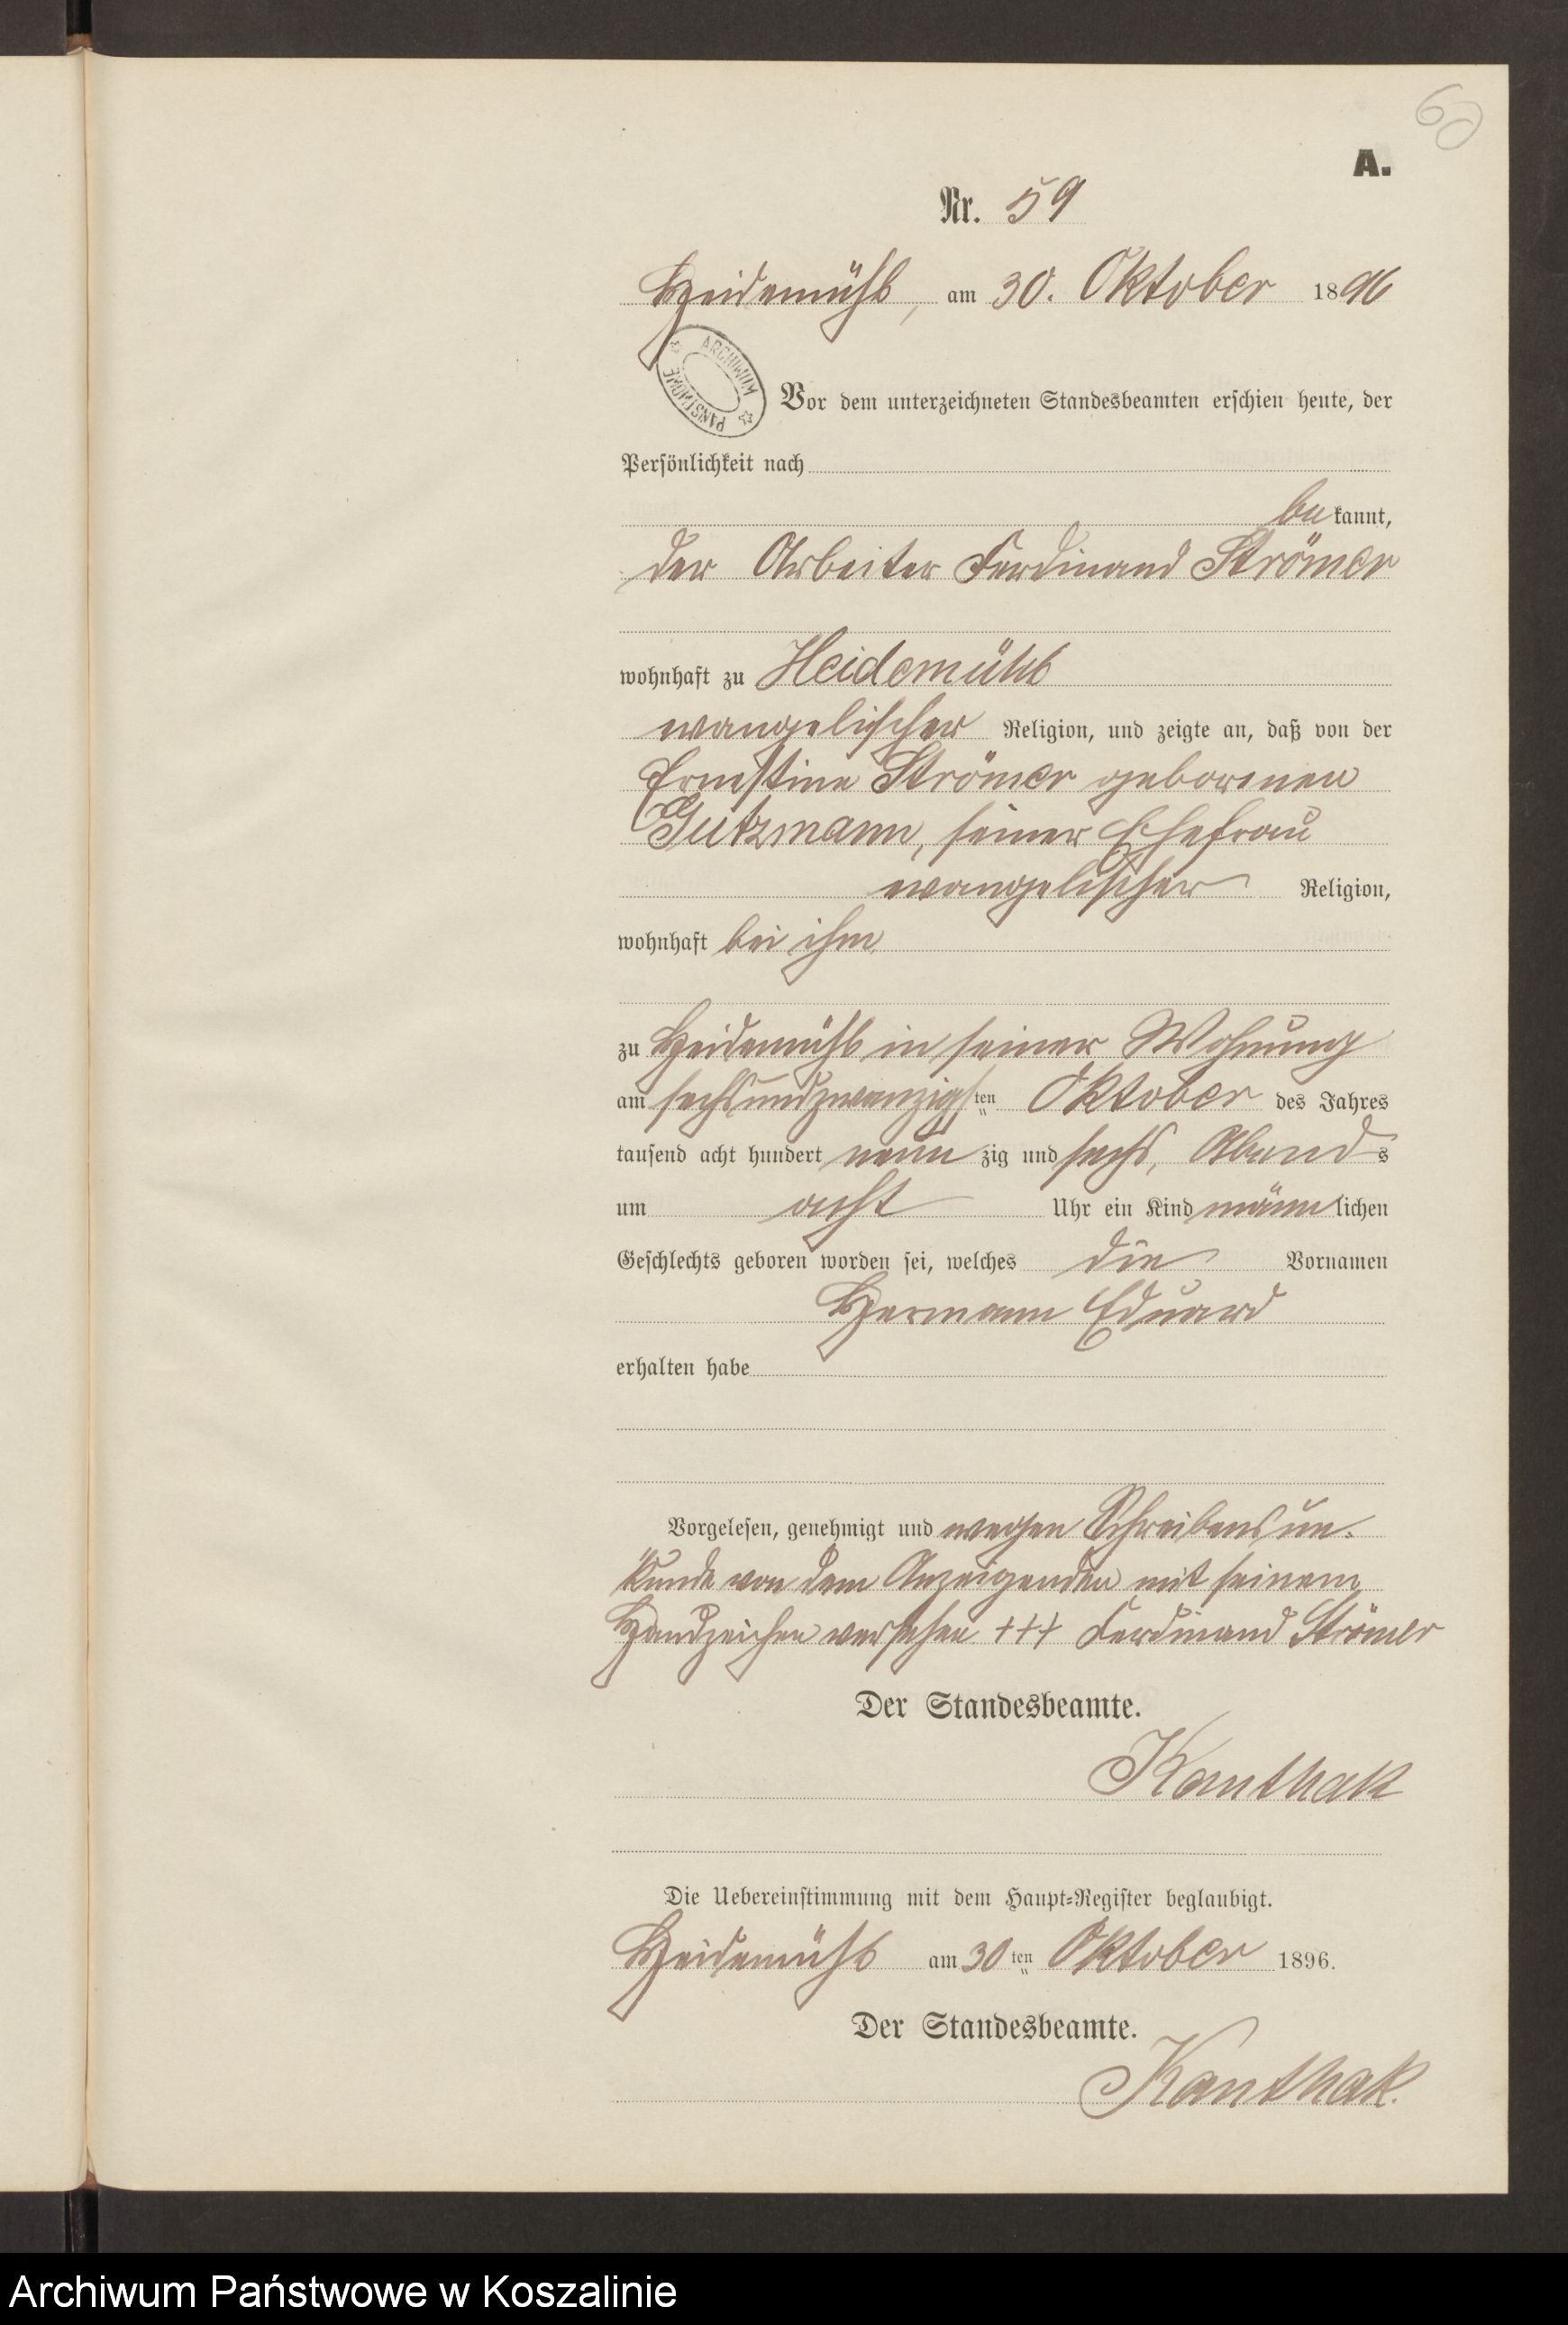 60
A.
Nr. 59
Heidemühl, am 30. Oktober 1896
ARCHIWUM PAŃSTWOWE
Vor dem unterzeichneten Standesbeamten erschien heute, der
Persönlichkeit nach
be kannt,
der Arbeiter Ferdinand Strömer
wohnhaft zu Heidemühl
evangelischer Religion, und zeigte an, daß von der
Ernestine Strömer geborenen
Gutzmann, seiner Ehefrau
evangelischer Religion,
wohnhaft bei ihm
zu Heidemühl in seiner Wohnung
am sechsundzwanzigsten Oktober des Jahres
tausend acht hundert neun zig und sechs, Abends
um acht Uhr ein Kind männlichen
Geschlechts geboren worden sei, welches die Vornamen
Hermann Eduard
erhalten habe
Vorgelesen, genehmigt und wegen Schreibensun-
kunde von dem Anzeigenden mit seinem
Handzeichen versehen +++ Ferdinand Strömer
Der Standesbeamte.
Kanthak
Die Uebereinstimmung mit dem Haupt-Register beglaubigt.
Heidemühl am 30ten Oktober 1896.
Der Standesbeamte.
Kanthak.
Archiwum Państwowe w Koszalinie